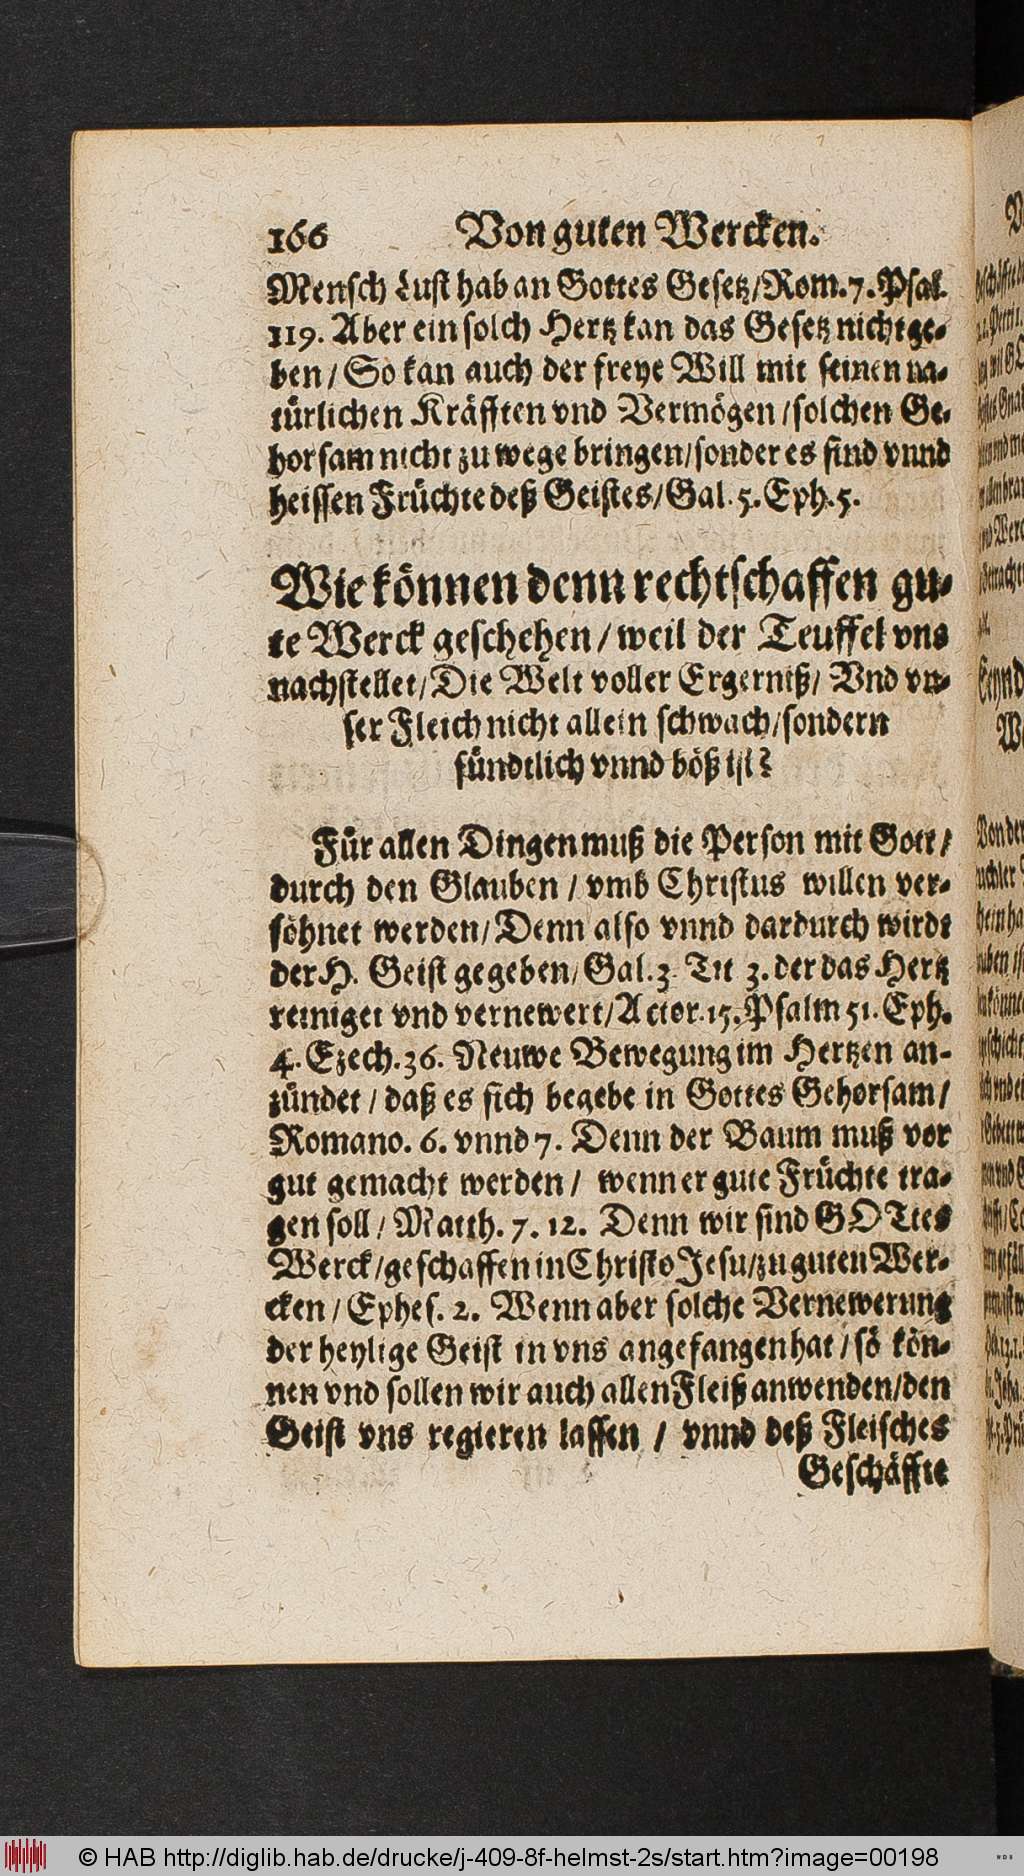 166 Von guten Wercken.
Mensch Lust hab an Gottes Gesetz/Rom.7.Psal.
119. Aber ein solch Hertz kan das Gesetz nicht ge-
ben / So kan auch der freye Will mit seinen na-
türlichen Kräfften vnd Vermögen / solchen Ge-
horsam nicht zu wege bringen/sonder es sind vnnd
heissen Früchte deß Geistes/Gal. 5. Eph. 5.
Wie können denn rechtschaffen gu-
te Werck geschehen / weil der Teuffel vns
nachstellet/Die Welt voller Ergerniß/ Vnd vn-
ser Fleich nicht allein schwach/sondern
sündtlich vnnd böß ist?
Für allen Dingen muß die Person mit Gott /
durch den Glauben / vmb Christus willen ver-
söhnet werden/Denn also vnnd dardurch wirdt
der H. Geist gegeben/Gal.3. Tit 3. der das Hertz
reiniget vnd vernewert/Actor.15.Psalm 51. Eph.
4. Ezech.36. Neuwe Bewegung im Hertzen an-
zündet / daß es sich begebe in Gottes Gehorsam /
Romano. 6. vnnd 7. Denn der Baum muß vor
gut gemacht werden / wenn er gute Früchte tra-
gen soll / Matth. 7. 12. Denn wir sind GOTtes
Werck /geschaffen in Christo Jesu/zu guten Wer-
cken / Ephes. 2. Wenn aber solche Vernewerung
der heylige Geist in vns angefangen hat / sö kön-
nen vnd sollen wir auch allen Fleiß anwenden/den
Geist vns regieren lassen / vnnd deß Fleisches
Geschäffte
© HAB http://diglib.hab.de/drucke/j-409-8f-helmst-2s/start.htm?image=00198